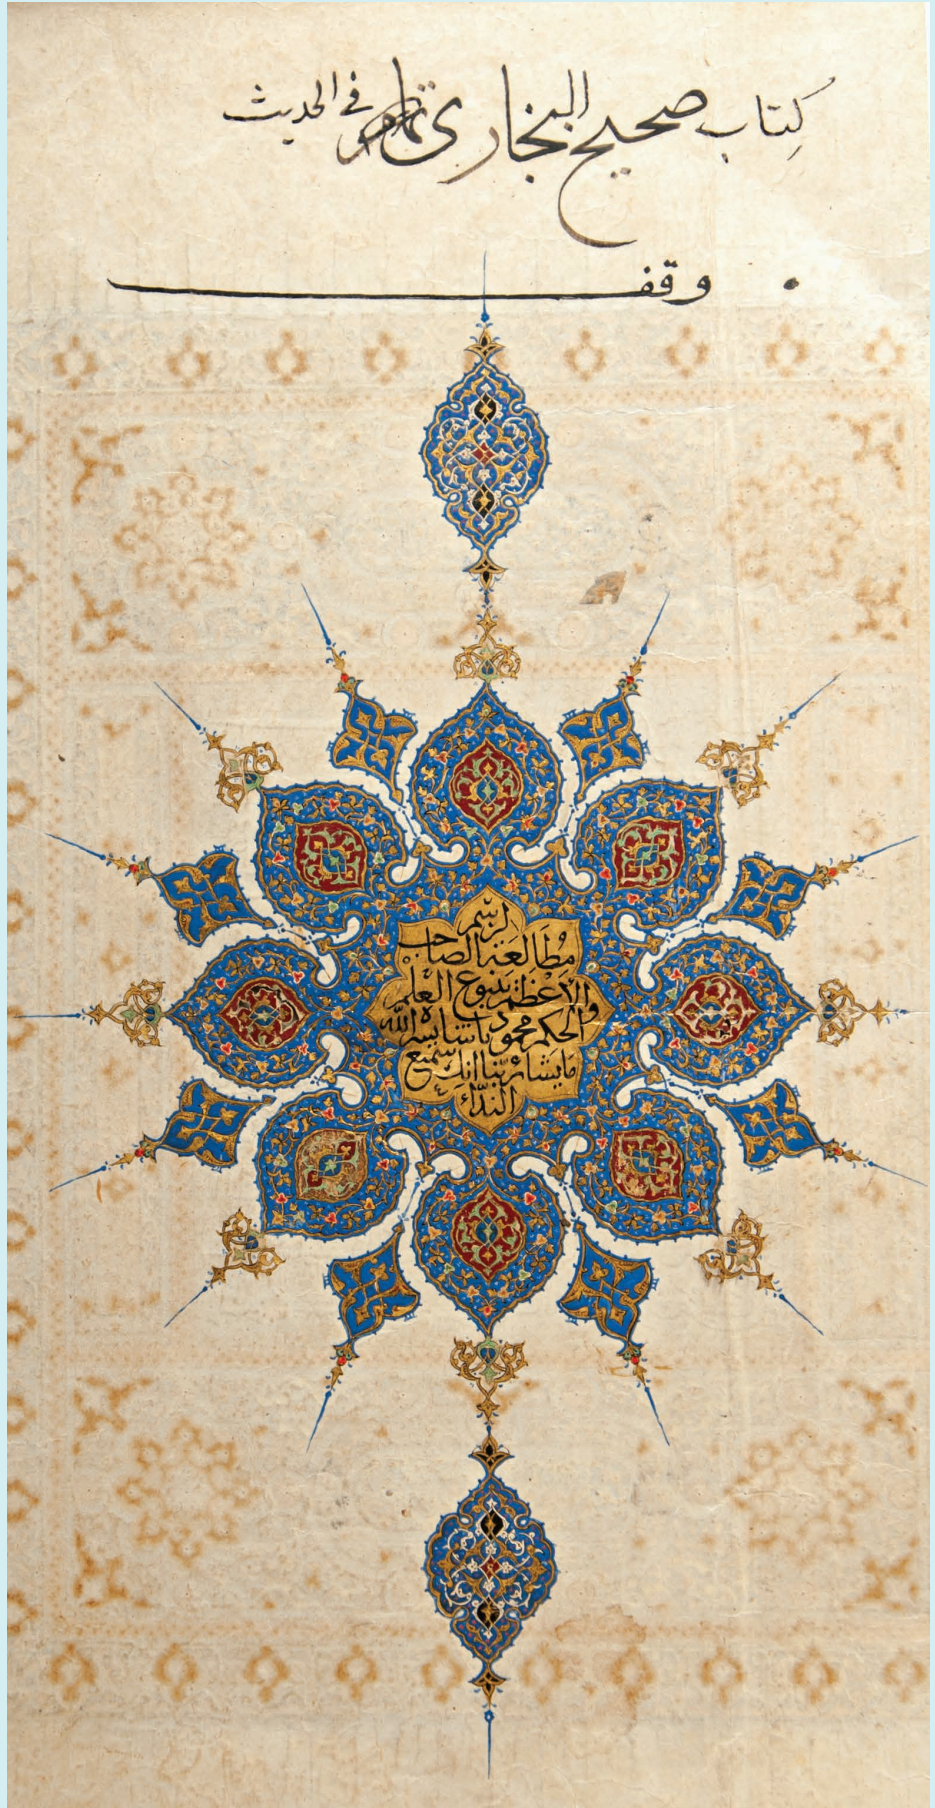 كتاب صحيح البخاري في الحديث
وقف
لرسم
مطالعة الصاحب
الاعظم ينبوع العلم
والحكم محمود باشا يسر الله
ما يشا ربنا انك سميع
الندآء